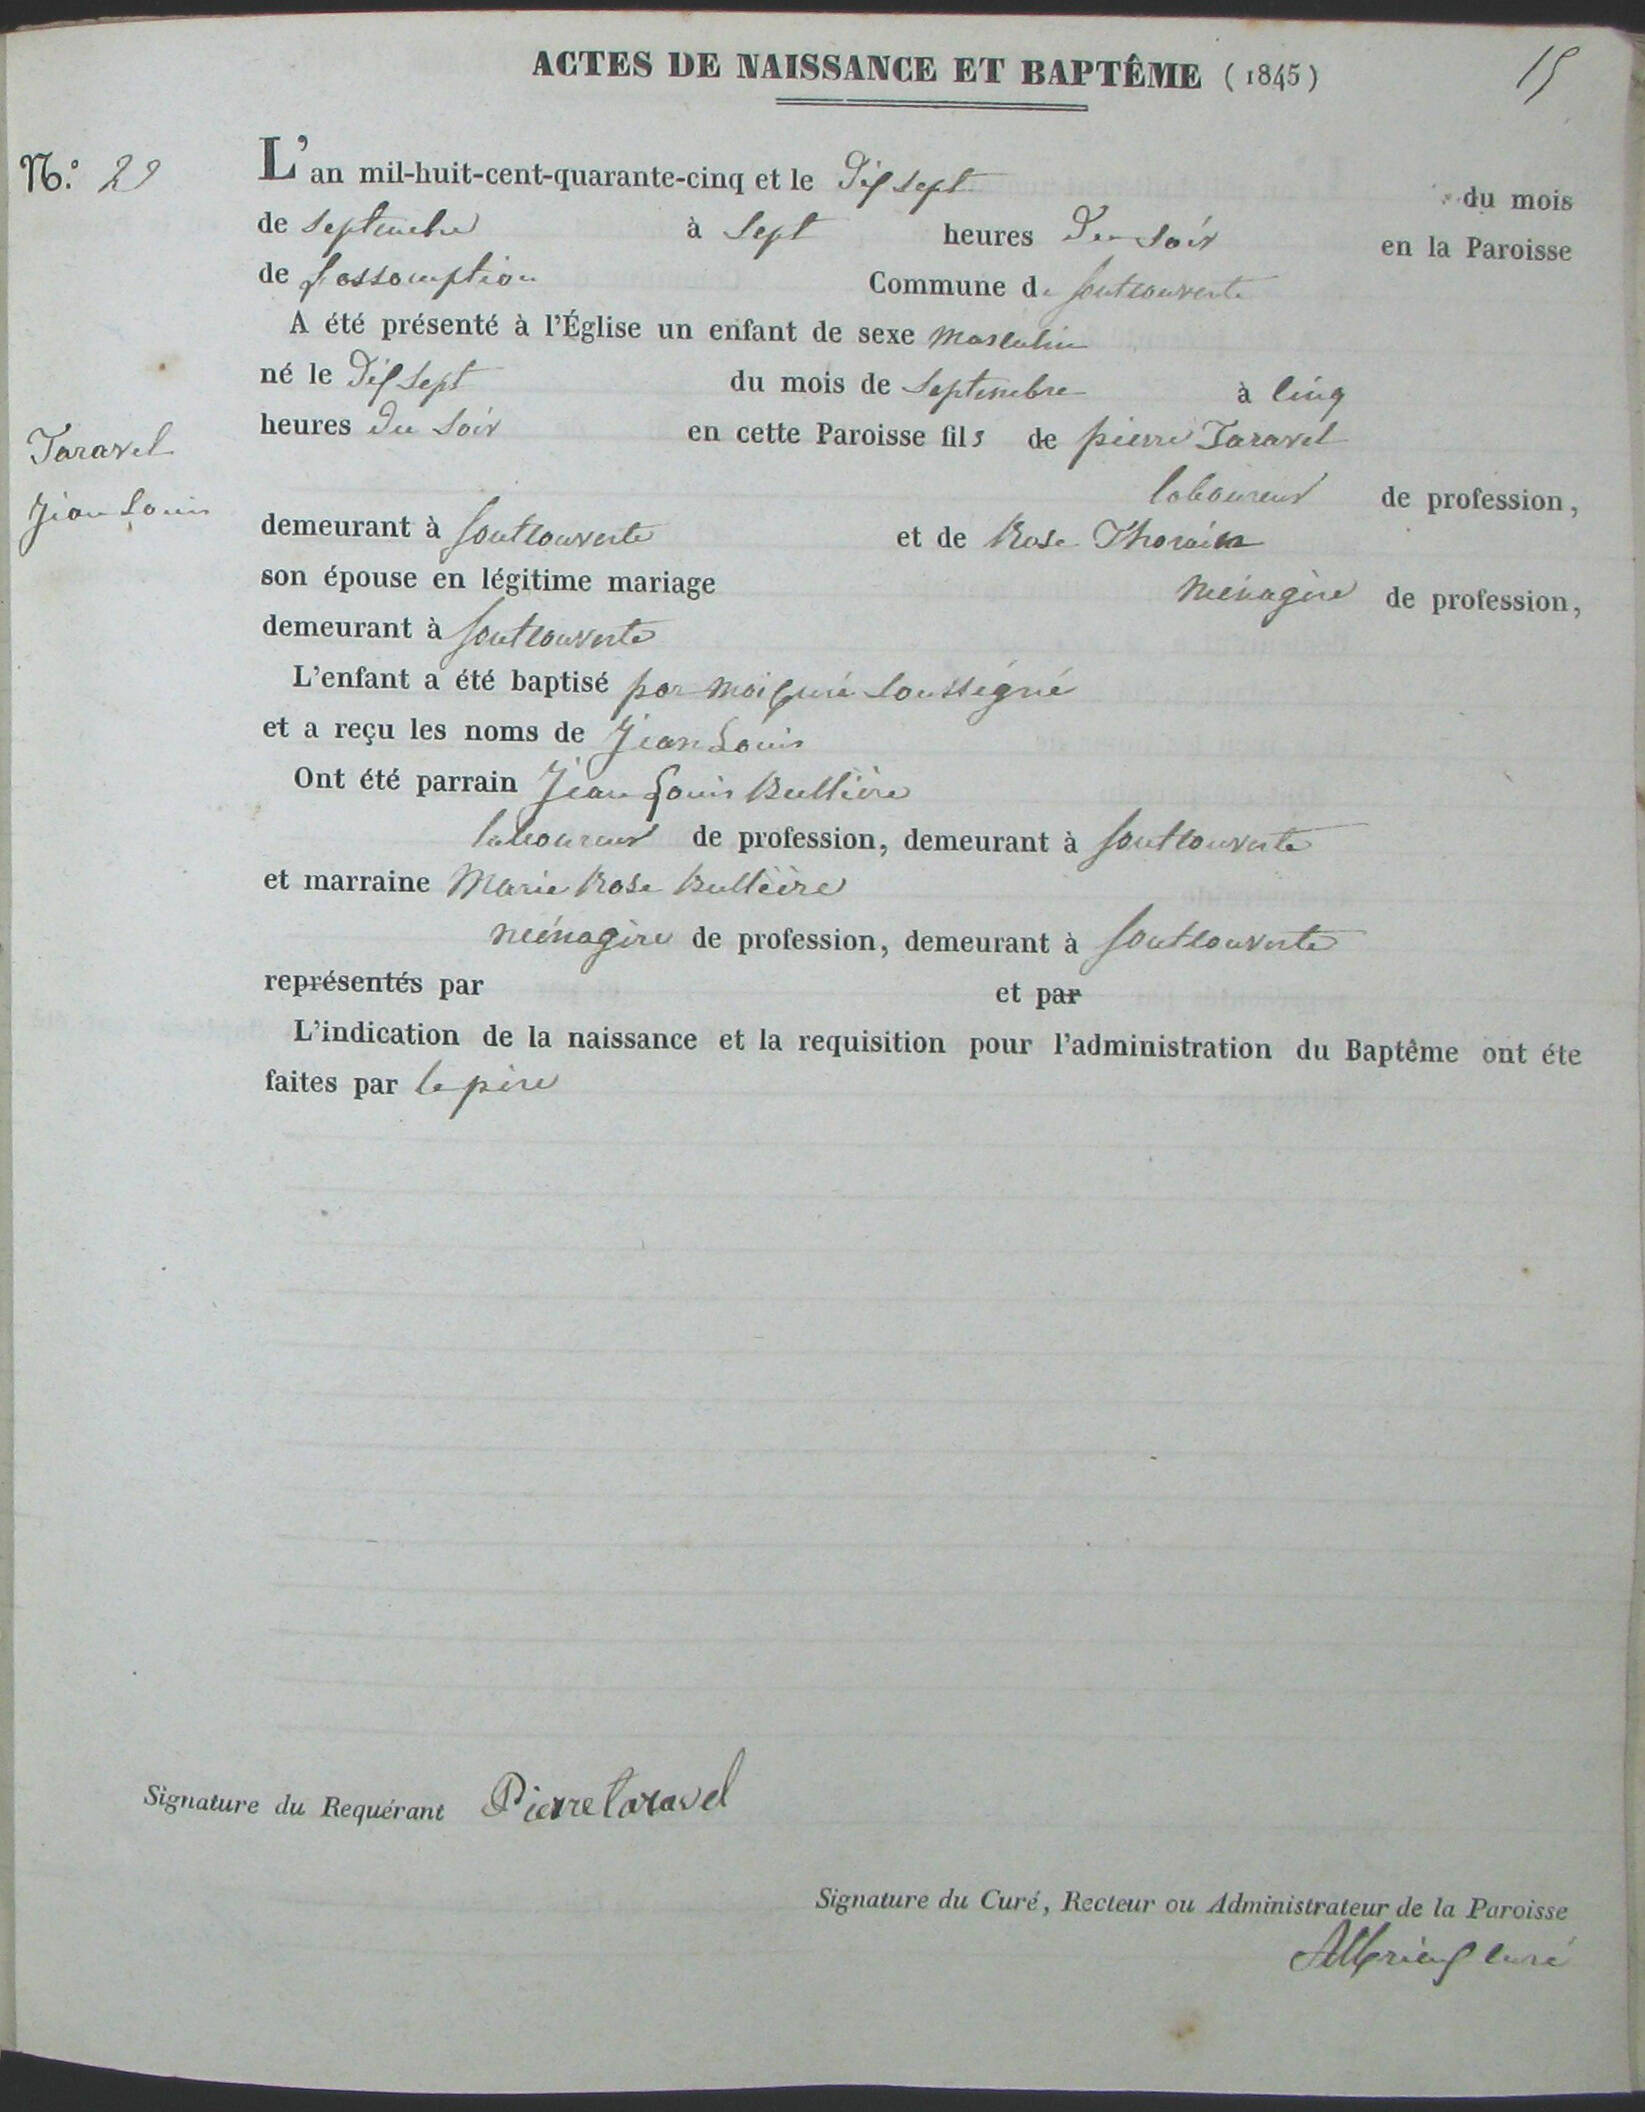 ACTES DE NAISSANCE ET BAPTÊME (1845)
15
N.º 29
L'an mil-huit-cent-quarante-cinq et le Dix sept du mois
de septembre à sept heures Du soir en la Paroisse
de l'assomption Commune de fontcouverte
A été présenté à l'Église un enfant de sexe masculin
né le Dix sept du mois de septembre à cinq
heures du soir en cette Paroisse fils de pierre Taravel
Taravel
Jean Louis
laboureur de profession,
demeurant à fontcouverte et de Rose
son épouse en légitime mariage ménagère de profession,
demeurant à fontcouverte
L'enfant a été baptisé par moi Curé soussigné
et a reçu les noms de Jean Louis
Ont été parrain Jean Louis Rullière
laboureur de profession, demeurant à fontcouverte
et marraine Marie Rose Rullière
ménagère de profession, demeurant à fontcouverte
représentés par et par
L'indication de la naissance et la requisition pour l'administration du Baptême ont éte
faites par le père
Signature du Requérant Pierre taravel
Signature du Curé, Recteur ou Administrateur de la Paroisse
curé